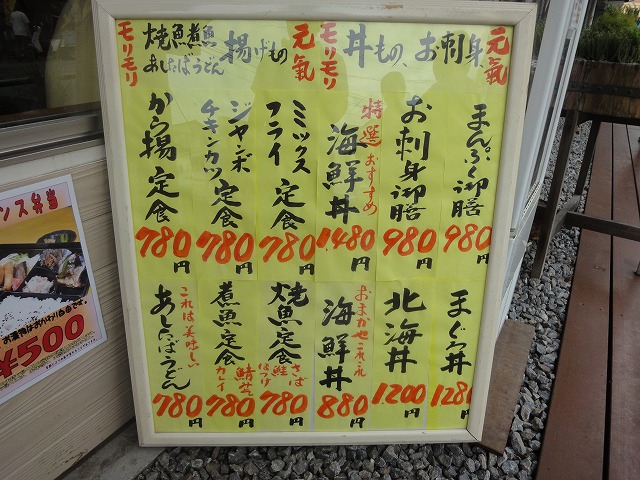 モリモリ
焼魚煮魚
あしたばうどん
揚げもの
元氣
モリモリ
丼もの、お刺身
元氣
まんぷく御膳
980円
お刺身御膳
980円
特選おすすめ
海鮮丼
1480円
ミックス
フライ定食
780円
ジャンボ
チキンカツ定食
780円
から揚定食
780円
まぐろ丼
1280
北海丼
1200円
おまかせ
海鮮丼
880円
焼魚定食
さば
鮭
ほっけ
780円
煮魚定食
カレイ
780円
これは美味しい
あしたばうどん
780円
ンス弁当
¥500